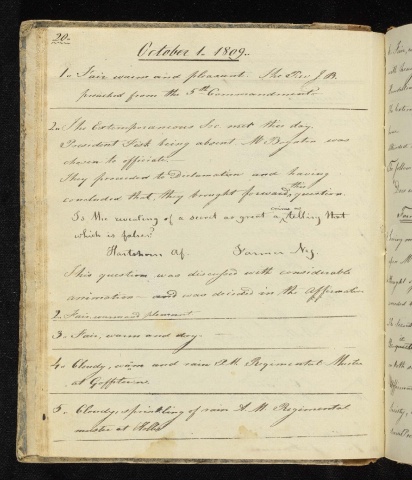 20.
October 1. 1809.
1. Fair warm and pleasant. The Rev J. B.
preached from the 5th Commandment.
2. The Extemporaneous Soc. met this day.
President Fisk being absent M Boynton was
chosen to officiate.
They proceeded to Declamation and having
concluded that, they brought forward this question.
Is the revealing of a secret as great a crime as telling that
which is false?
Hartshorn Af. Farmer Neg.
This question was discussed with considerable
animation and was decided in the Affirmative
2. Fair, warm and pleasant
3. Fair, warm and dry.
4. Cloudy, warm and rain P.M. Regimental Muster
at Goffstown
5. Cloudy, sprinkling of rain A.M. Regimental
muster at Hollis